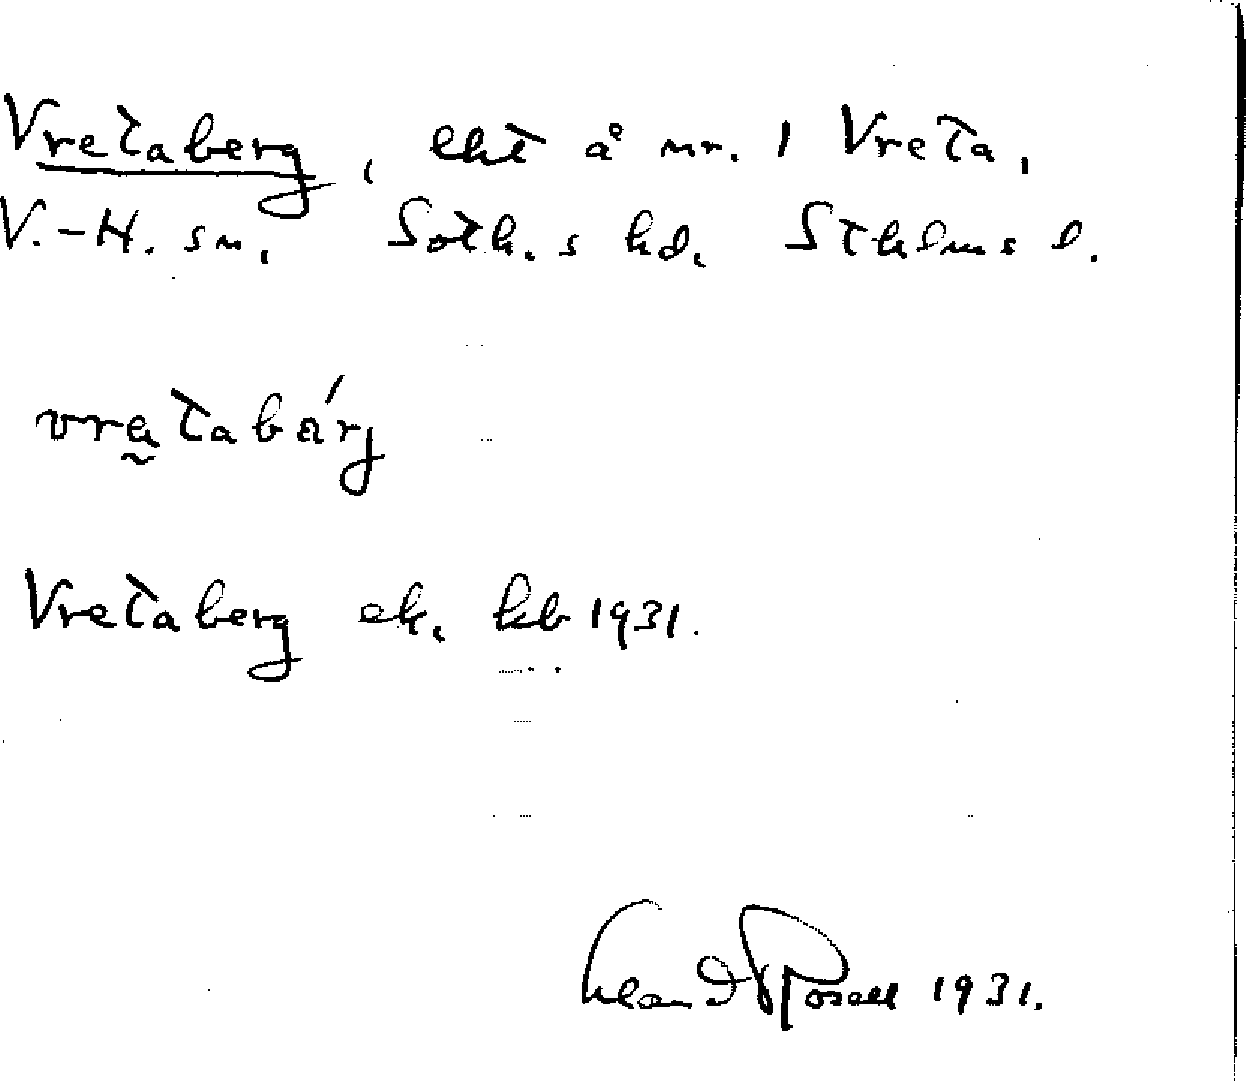 Vretaberg, lht å nr. 1 Vreta,
V.-H. sn, Soth. s hd, Sthlms l.
vretabärj
Vretaberg ek. kb 1931.
Rosell 1931.